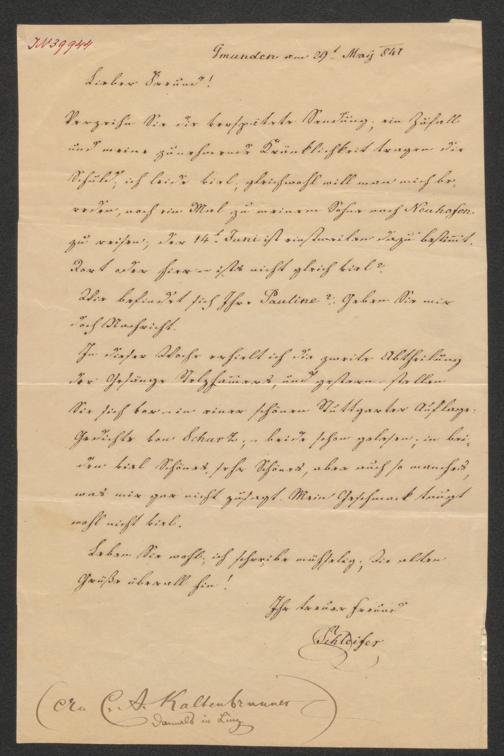 IN 39944
Gmunden am 29t May 841
Lieber Freund!
Verzeihn Sie die verspätete Sendung; ein Zufall
und meine zunehmende Kränklichkeit tragen die
Schuld; ich leide viel, gleichwohl will man mich be-
reden, noch ein Mal zu meinem Sohne nach Neuhofen
zu reisen; der 14t Juni ist einstweilen dazu bestimmt.
Dort oder hier – ists nicht gleich viel?
Wie befindet sich Ihre Pauline? Geben Sie mir
doch Nachricht.
In dieser Woche erhielt ich die zweite Abtheilung
der Gesänge Stelzhamers, und gestern – stellen
Sie sich vor – in einer schönen Stuttgarter Auflage:
Gedichte von Schurz; – beide schon gelesen; in bei-
den viel Schönes, sehr Schönes, aber auch so manches,
was mir gar nicht zusagt. Mein Geschmack taugt
wohl nicht viel.
Leben Sie wohl; ich schreibe mühselig; die alten
Grüße überall hin!
Ihr treuer Freund
Schleifer
(an C. A. Kaltenbrunner
damals in Linz)